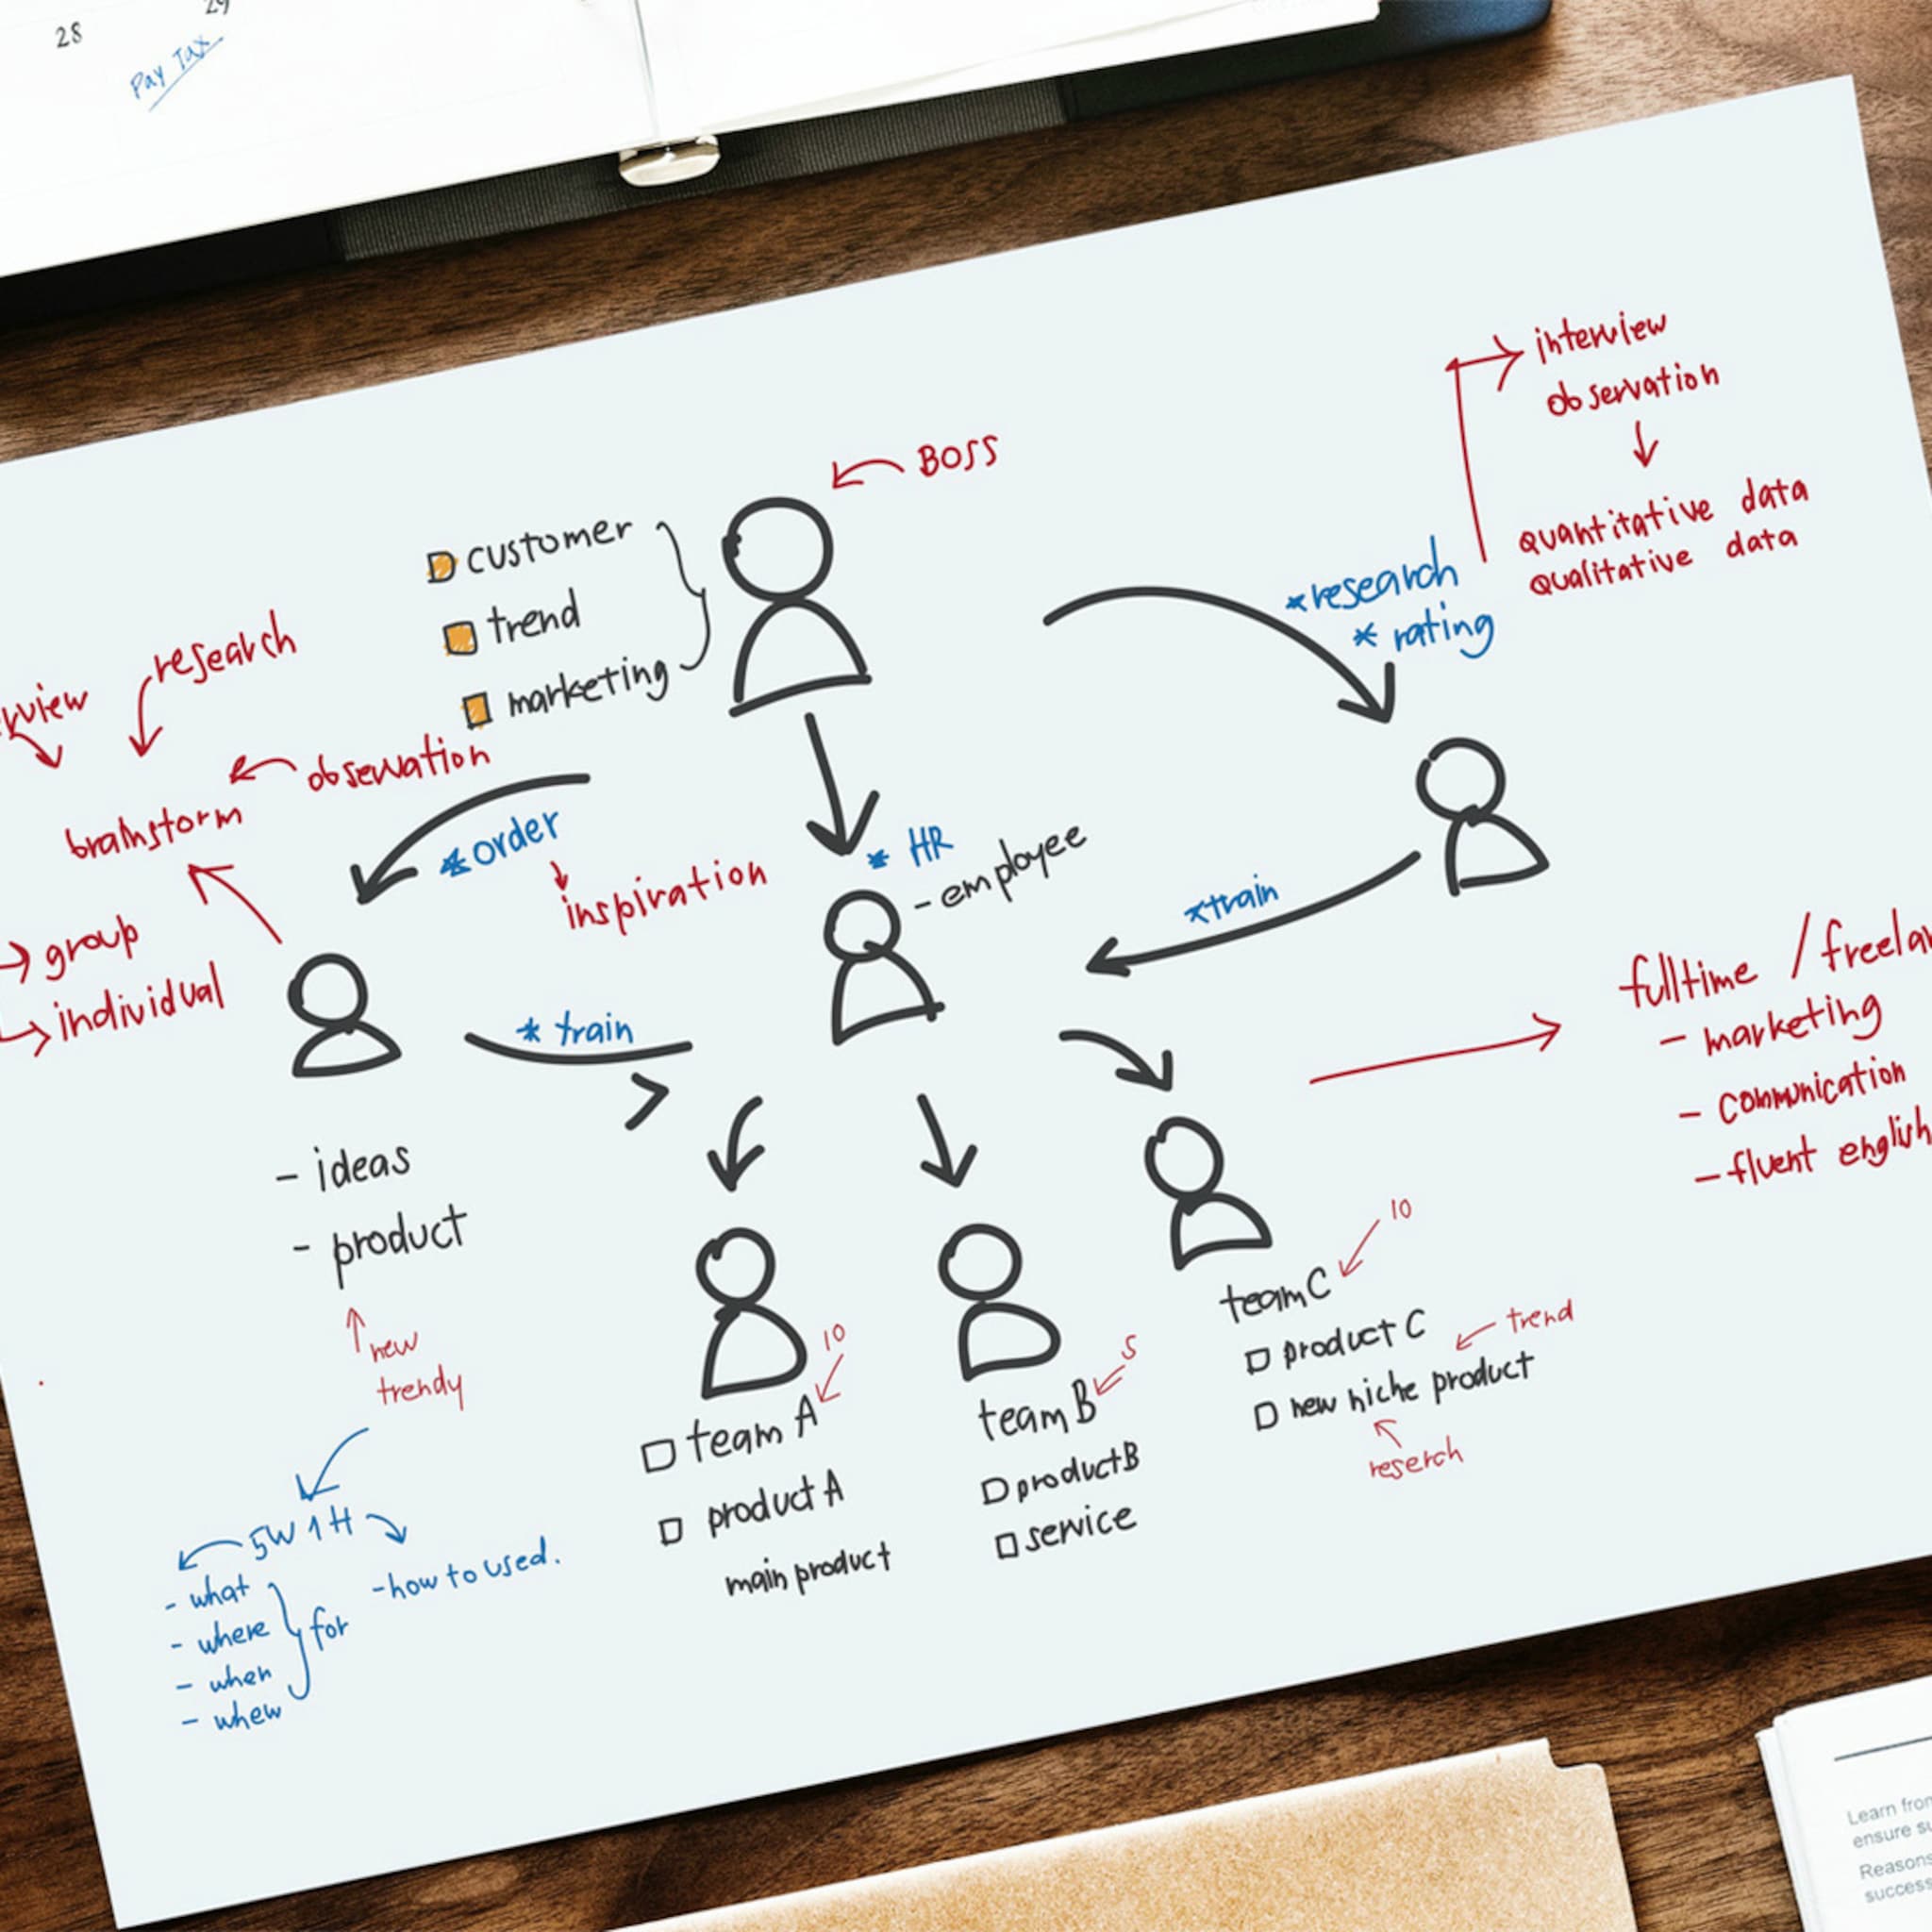 28
29
Pay Tax
BOSS
customer
trend
marketing
interview
observation
quantitative data
qualitative data
*research
* rating
research
observation
brainstorm
group
individual
*order
inspiration
* HR
- employee
*train
* train
fulltime /
- marketing
- communication
- fluent english
- ideas
- product
new
trendy
5W 1H
- what
- where
- when
- whew
for
-how to used.
10
team A
product A
main product
5
team B
product B
service
10
team C
product C
trend
new niche product
reserch
Learn from
ensure
Reasons
success